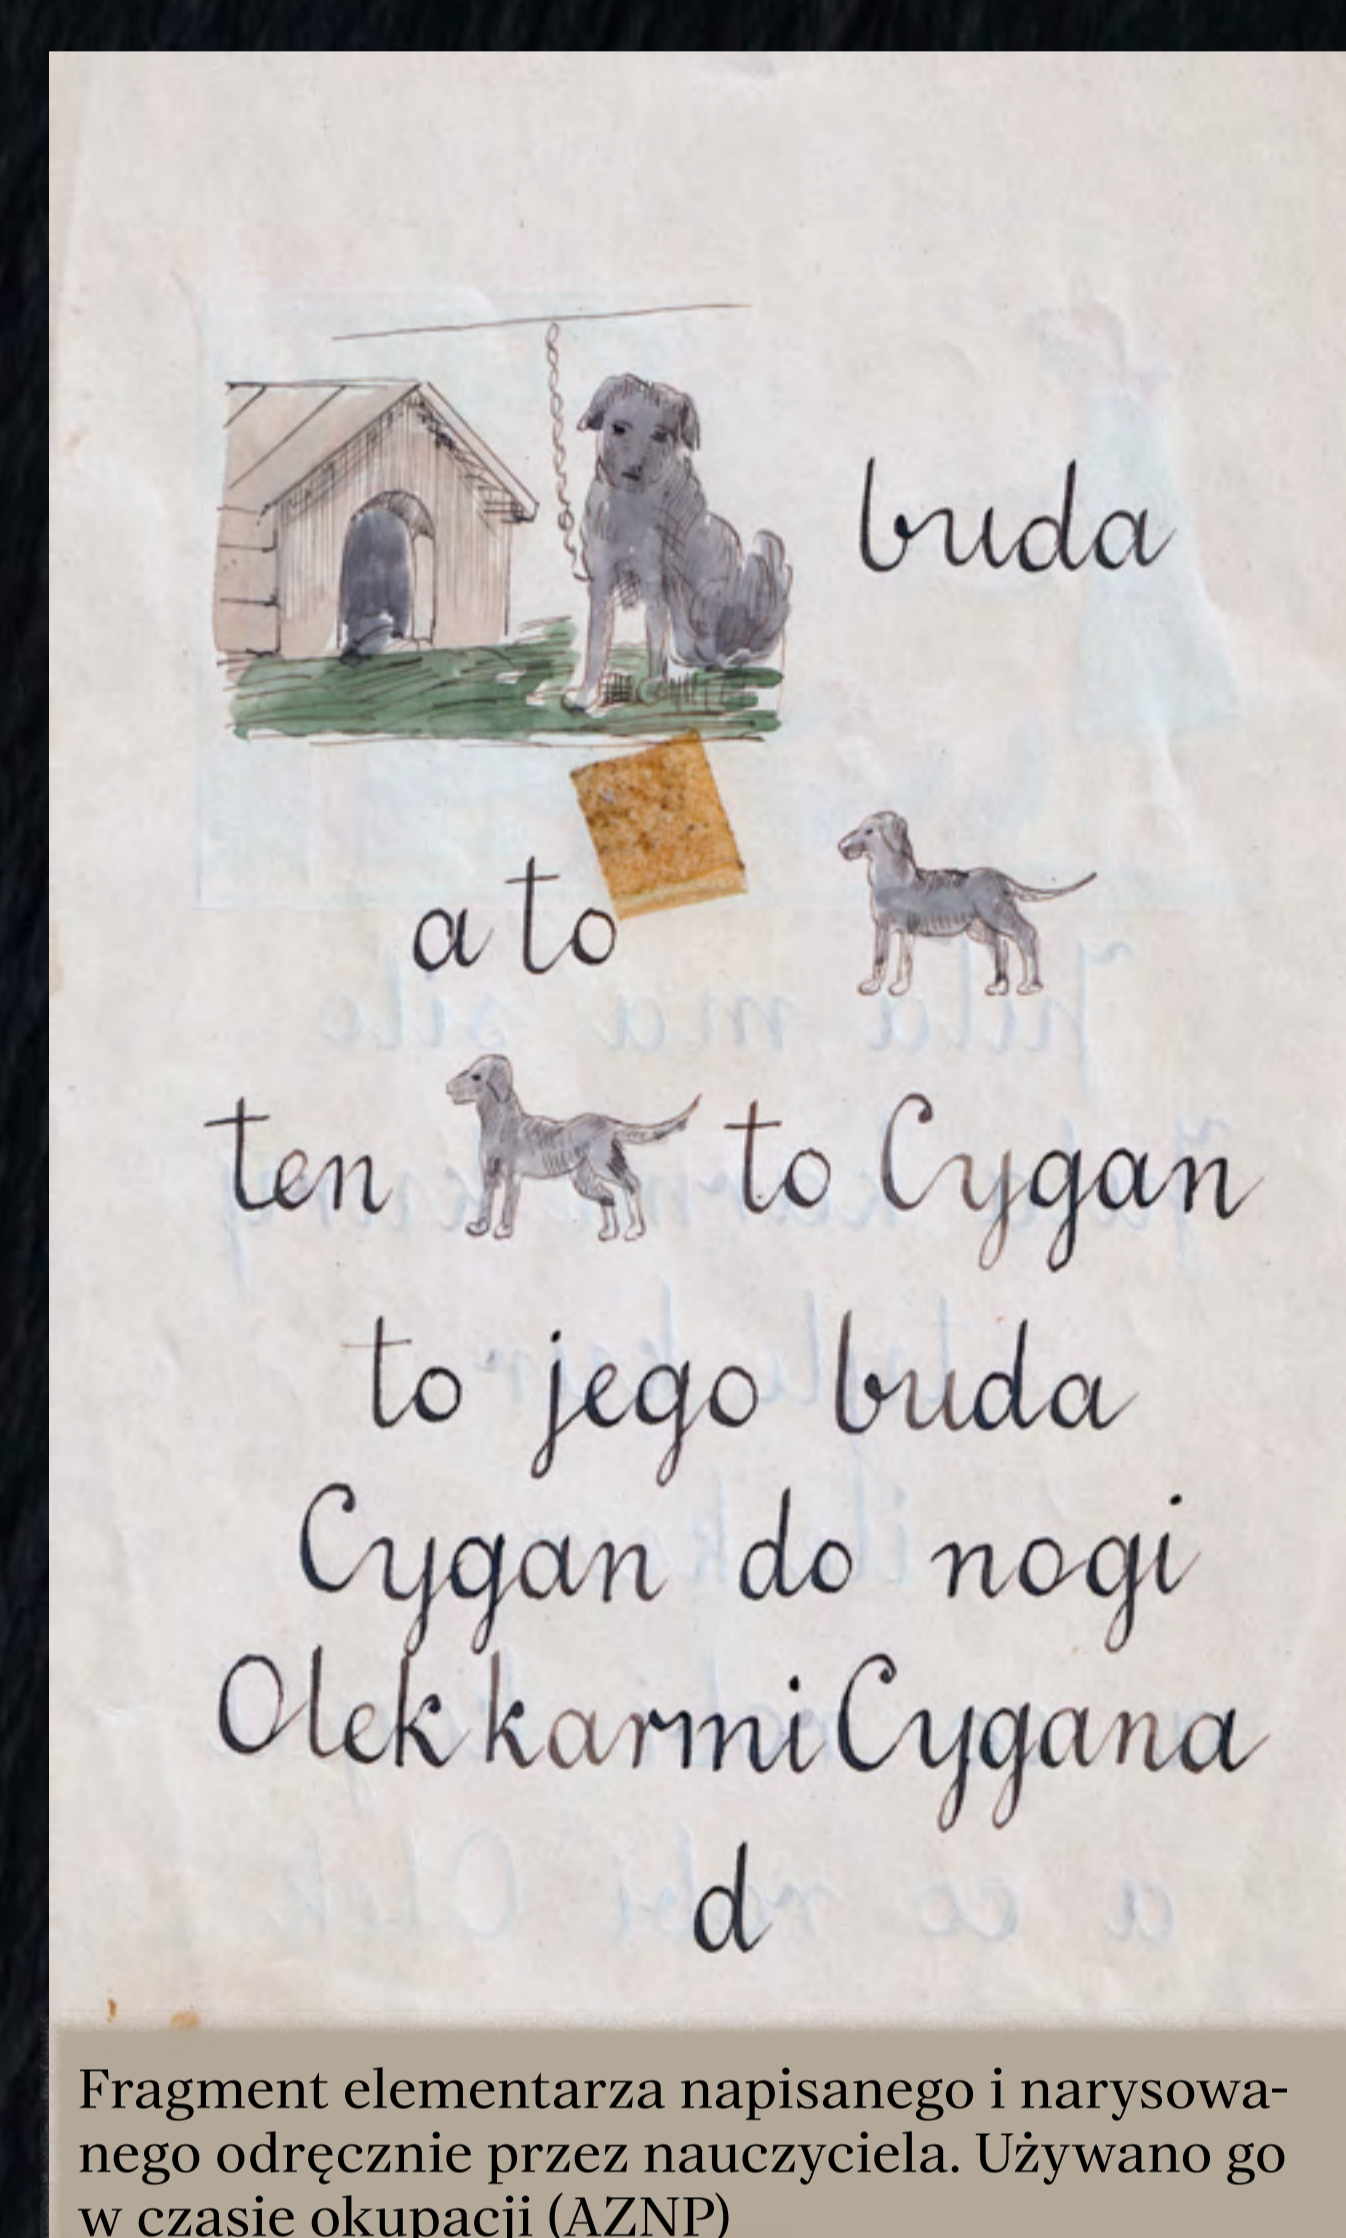 buda
a to
ten to Cygan
to jego buda
Cygan do nogi
Olek karmi Cygana
d
Fragment elementarza napisanego i narysowa-
nego odręcznie przez nauczyciela. Używano go
w czasie okupacji (AZNP)